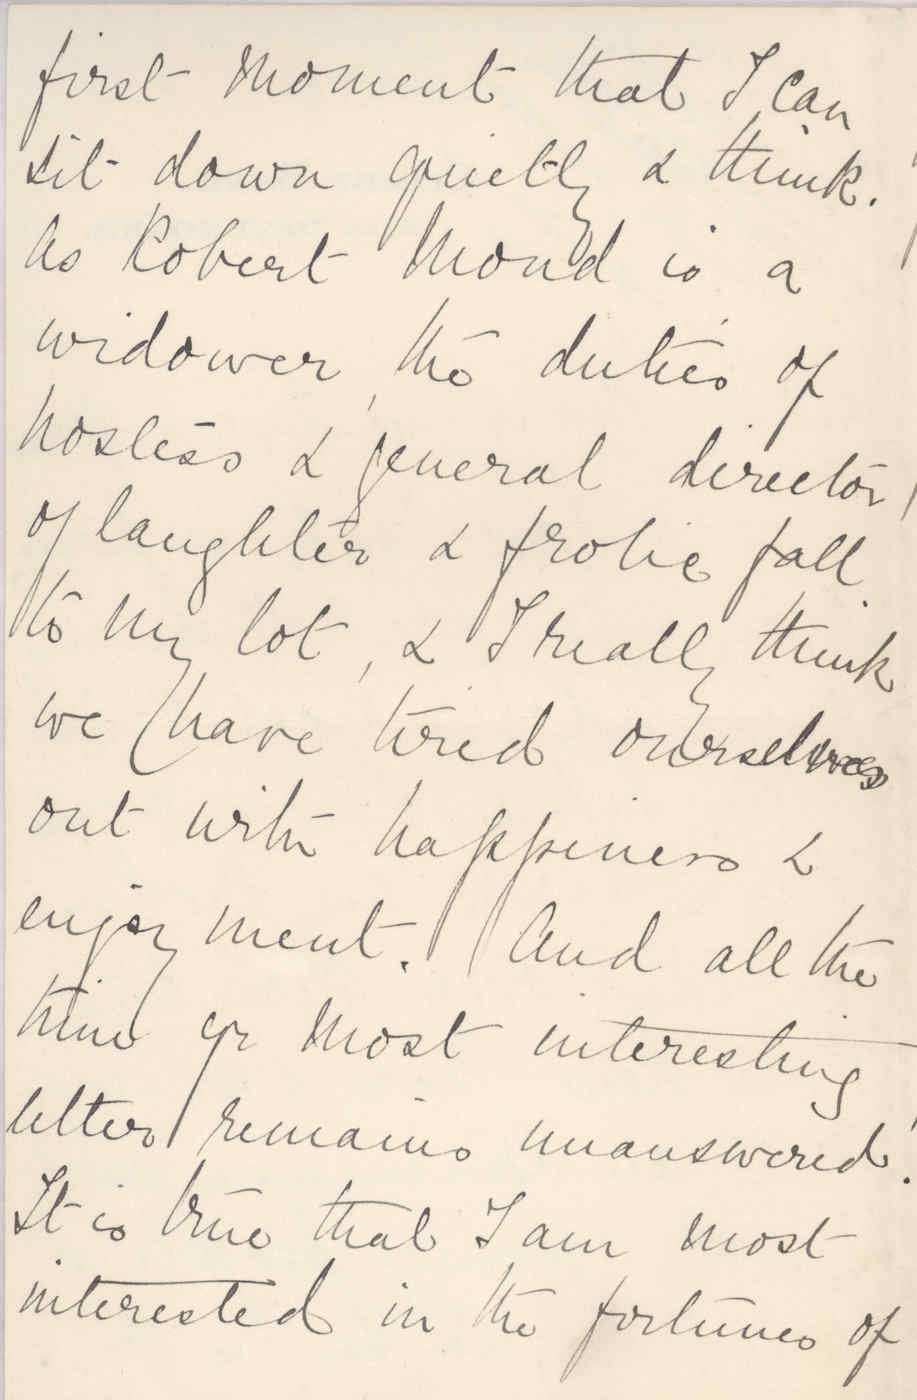 first moment that I can
sit down quietly & think.
As Robert Mond is a
widower, the duties of
hostess & general director
of laughter & frolic fall
to my lot, & I really think
we have tired ourselves
out with happiness &
enjoyment. And all the
time yr most interesting
letter remains unanswered.
It is true that I am most
interested in the fortunes of